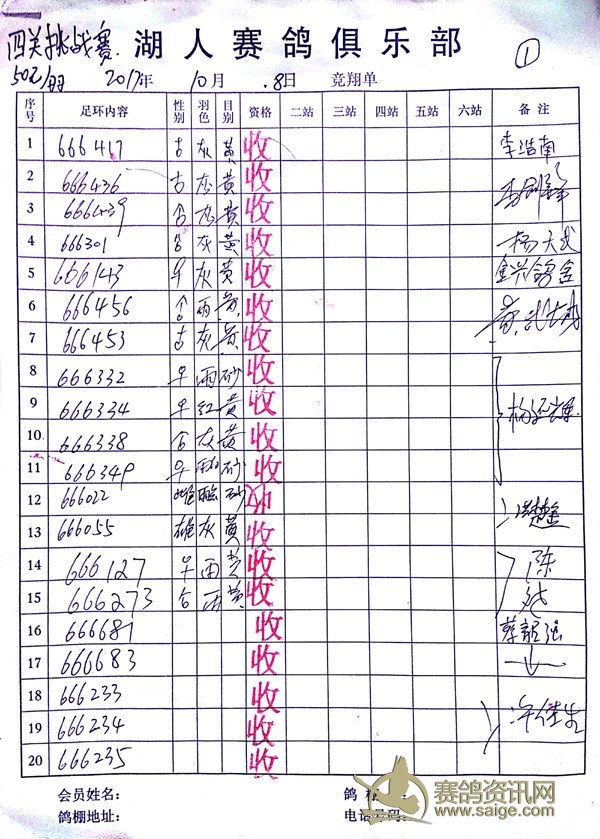 四关挑战赛 湖人赛鸽俱乐部
502/羽 2017年 10月 8日 竞翔单 ①
序号 足环内容 性别 羽色 目别 资格 二站 三站 四站 五站 六站 备注
1 666417 灰 黄 收 李浩南
2 666436 灰 黄 收
3 666439 灰 黄 收
4 666301 灰 黄 收 杨天武
5 666143 灰 黄 收
6 666456 雨 黄 收
7 666453 灰 黄 收
8 666332 雨 砂 收
9 666334 红 黄 收
10 666338 灰 黄 收
11 666349 砂 收
12 666022 雌 砂 收
13 666055 雄 灰 黄 收
14 666127 雨 黄 收 陈
15 666273 雨 黄 收
16 666681 收
17 666683 收
18 666233 收
19 666234 收
20 666235 收
会员姓名: 鸽
鸽棚地址: 电话号码:
赛鸽资讯网
www.saige.com